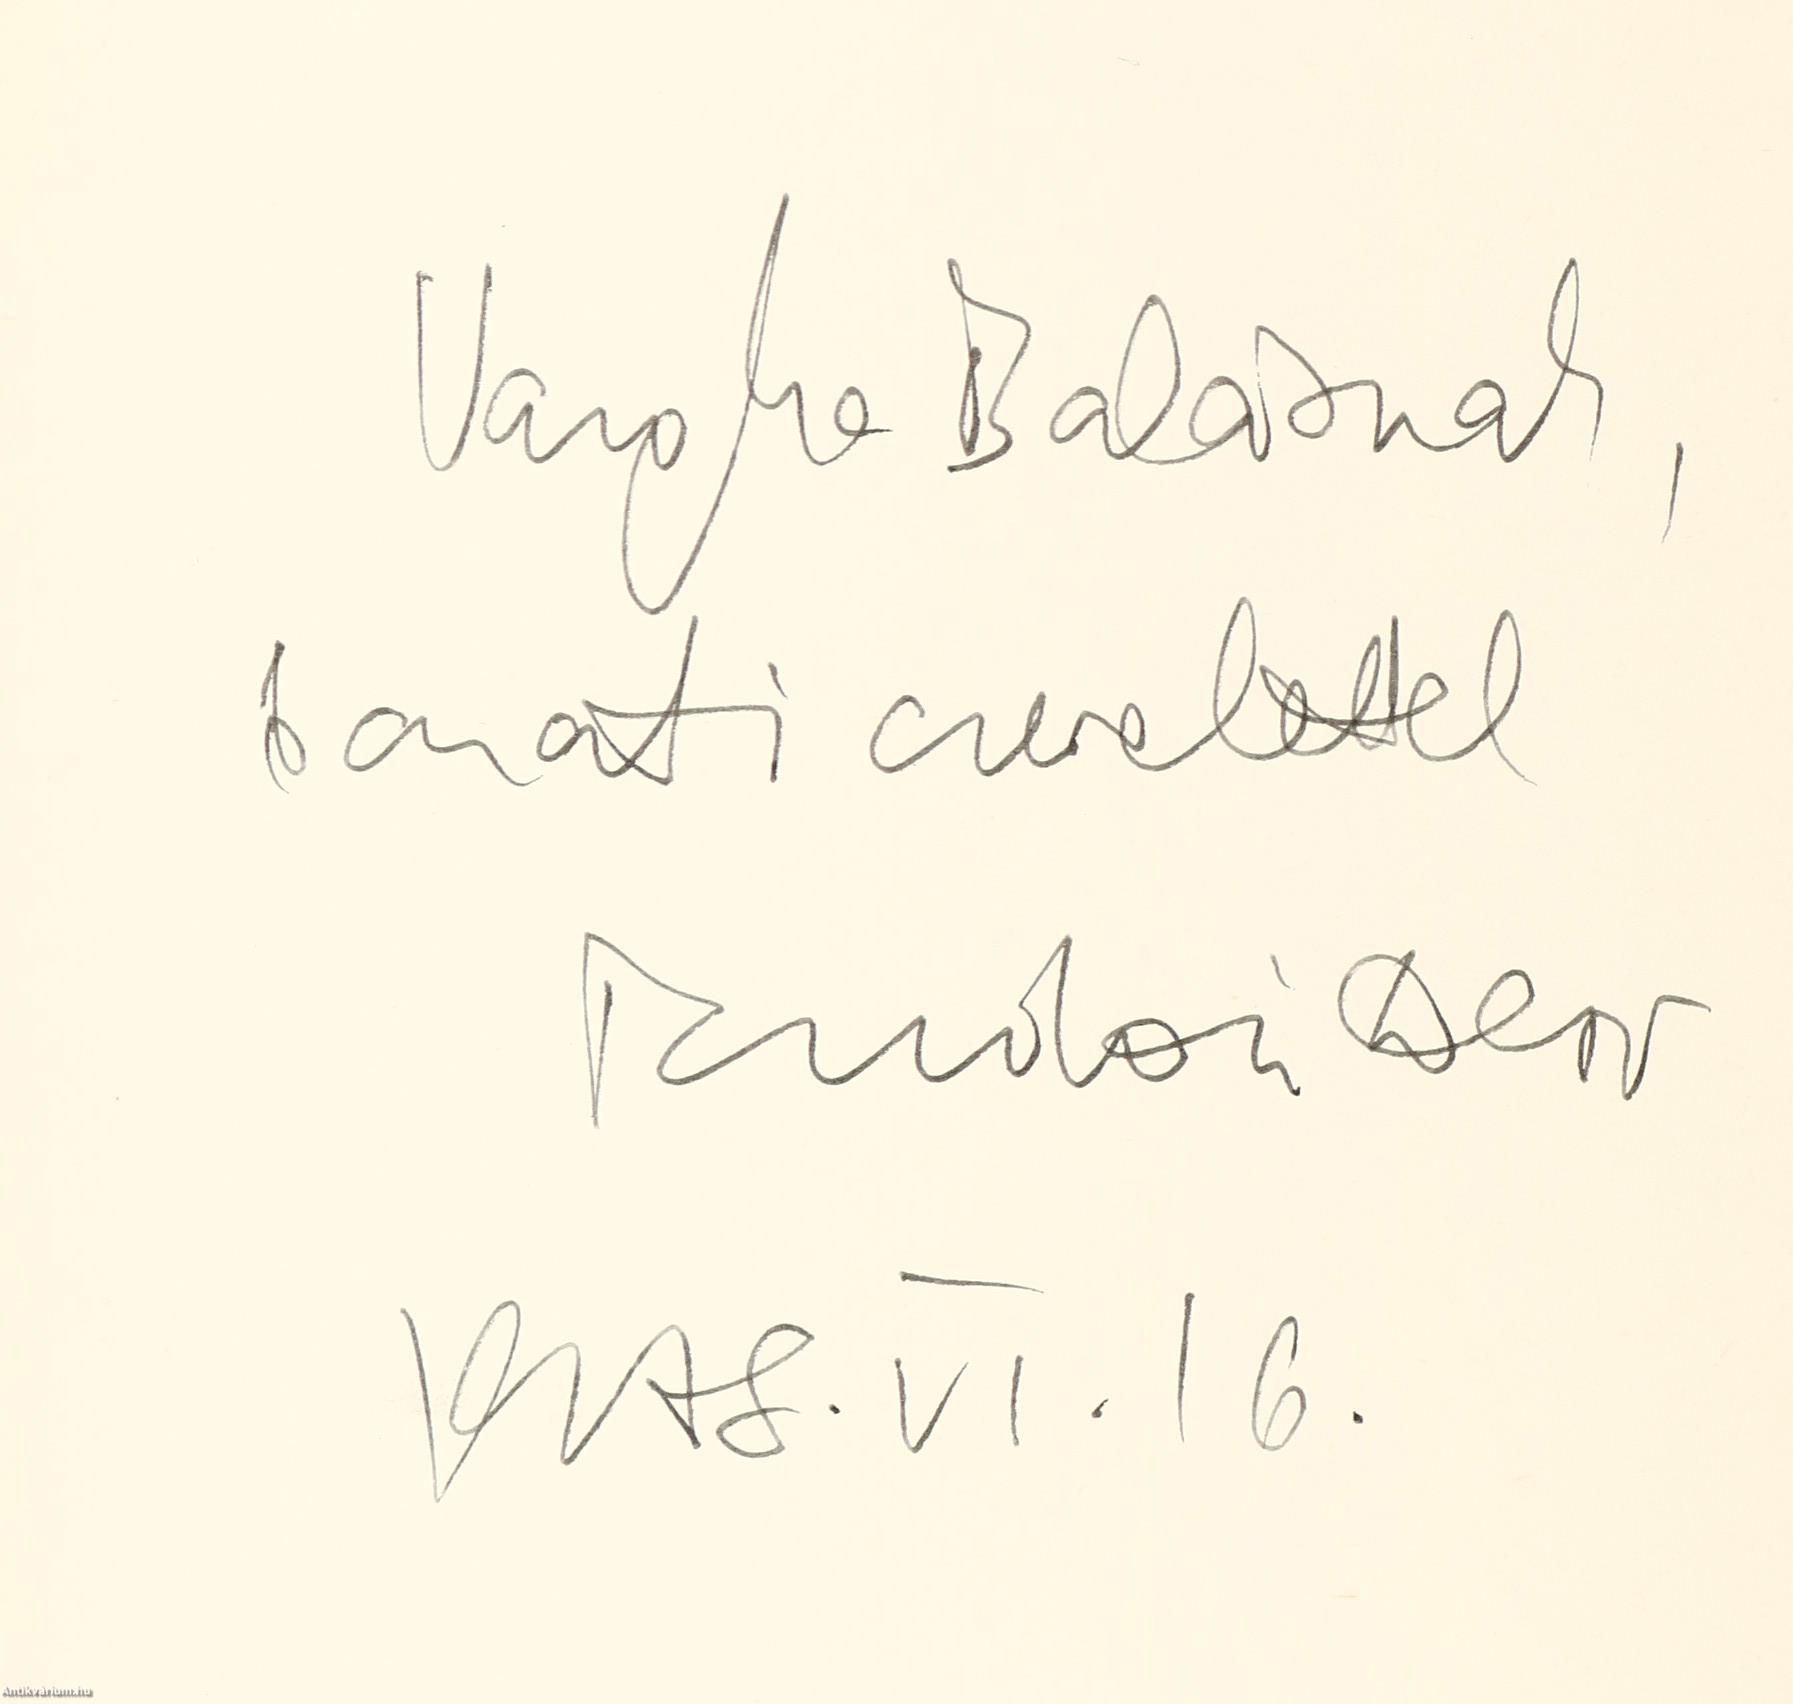 Vargha Balázsnak,
baráti szeretettel
Tandori Dezső
VI. 16.
Antikvárium.hu